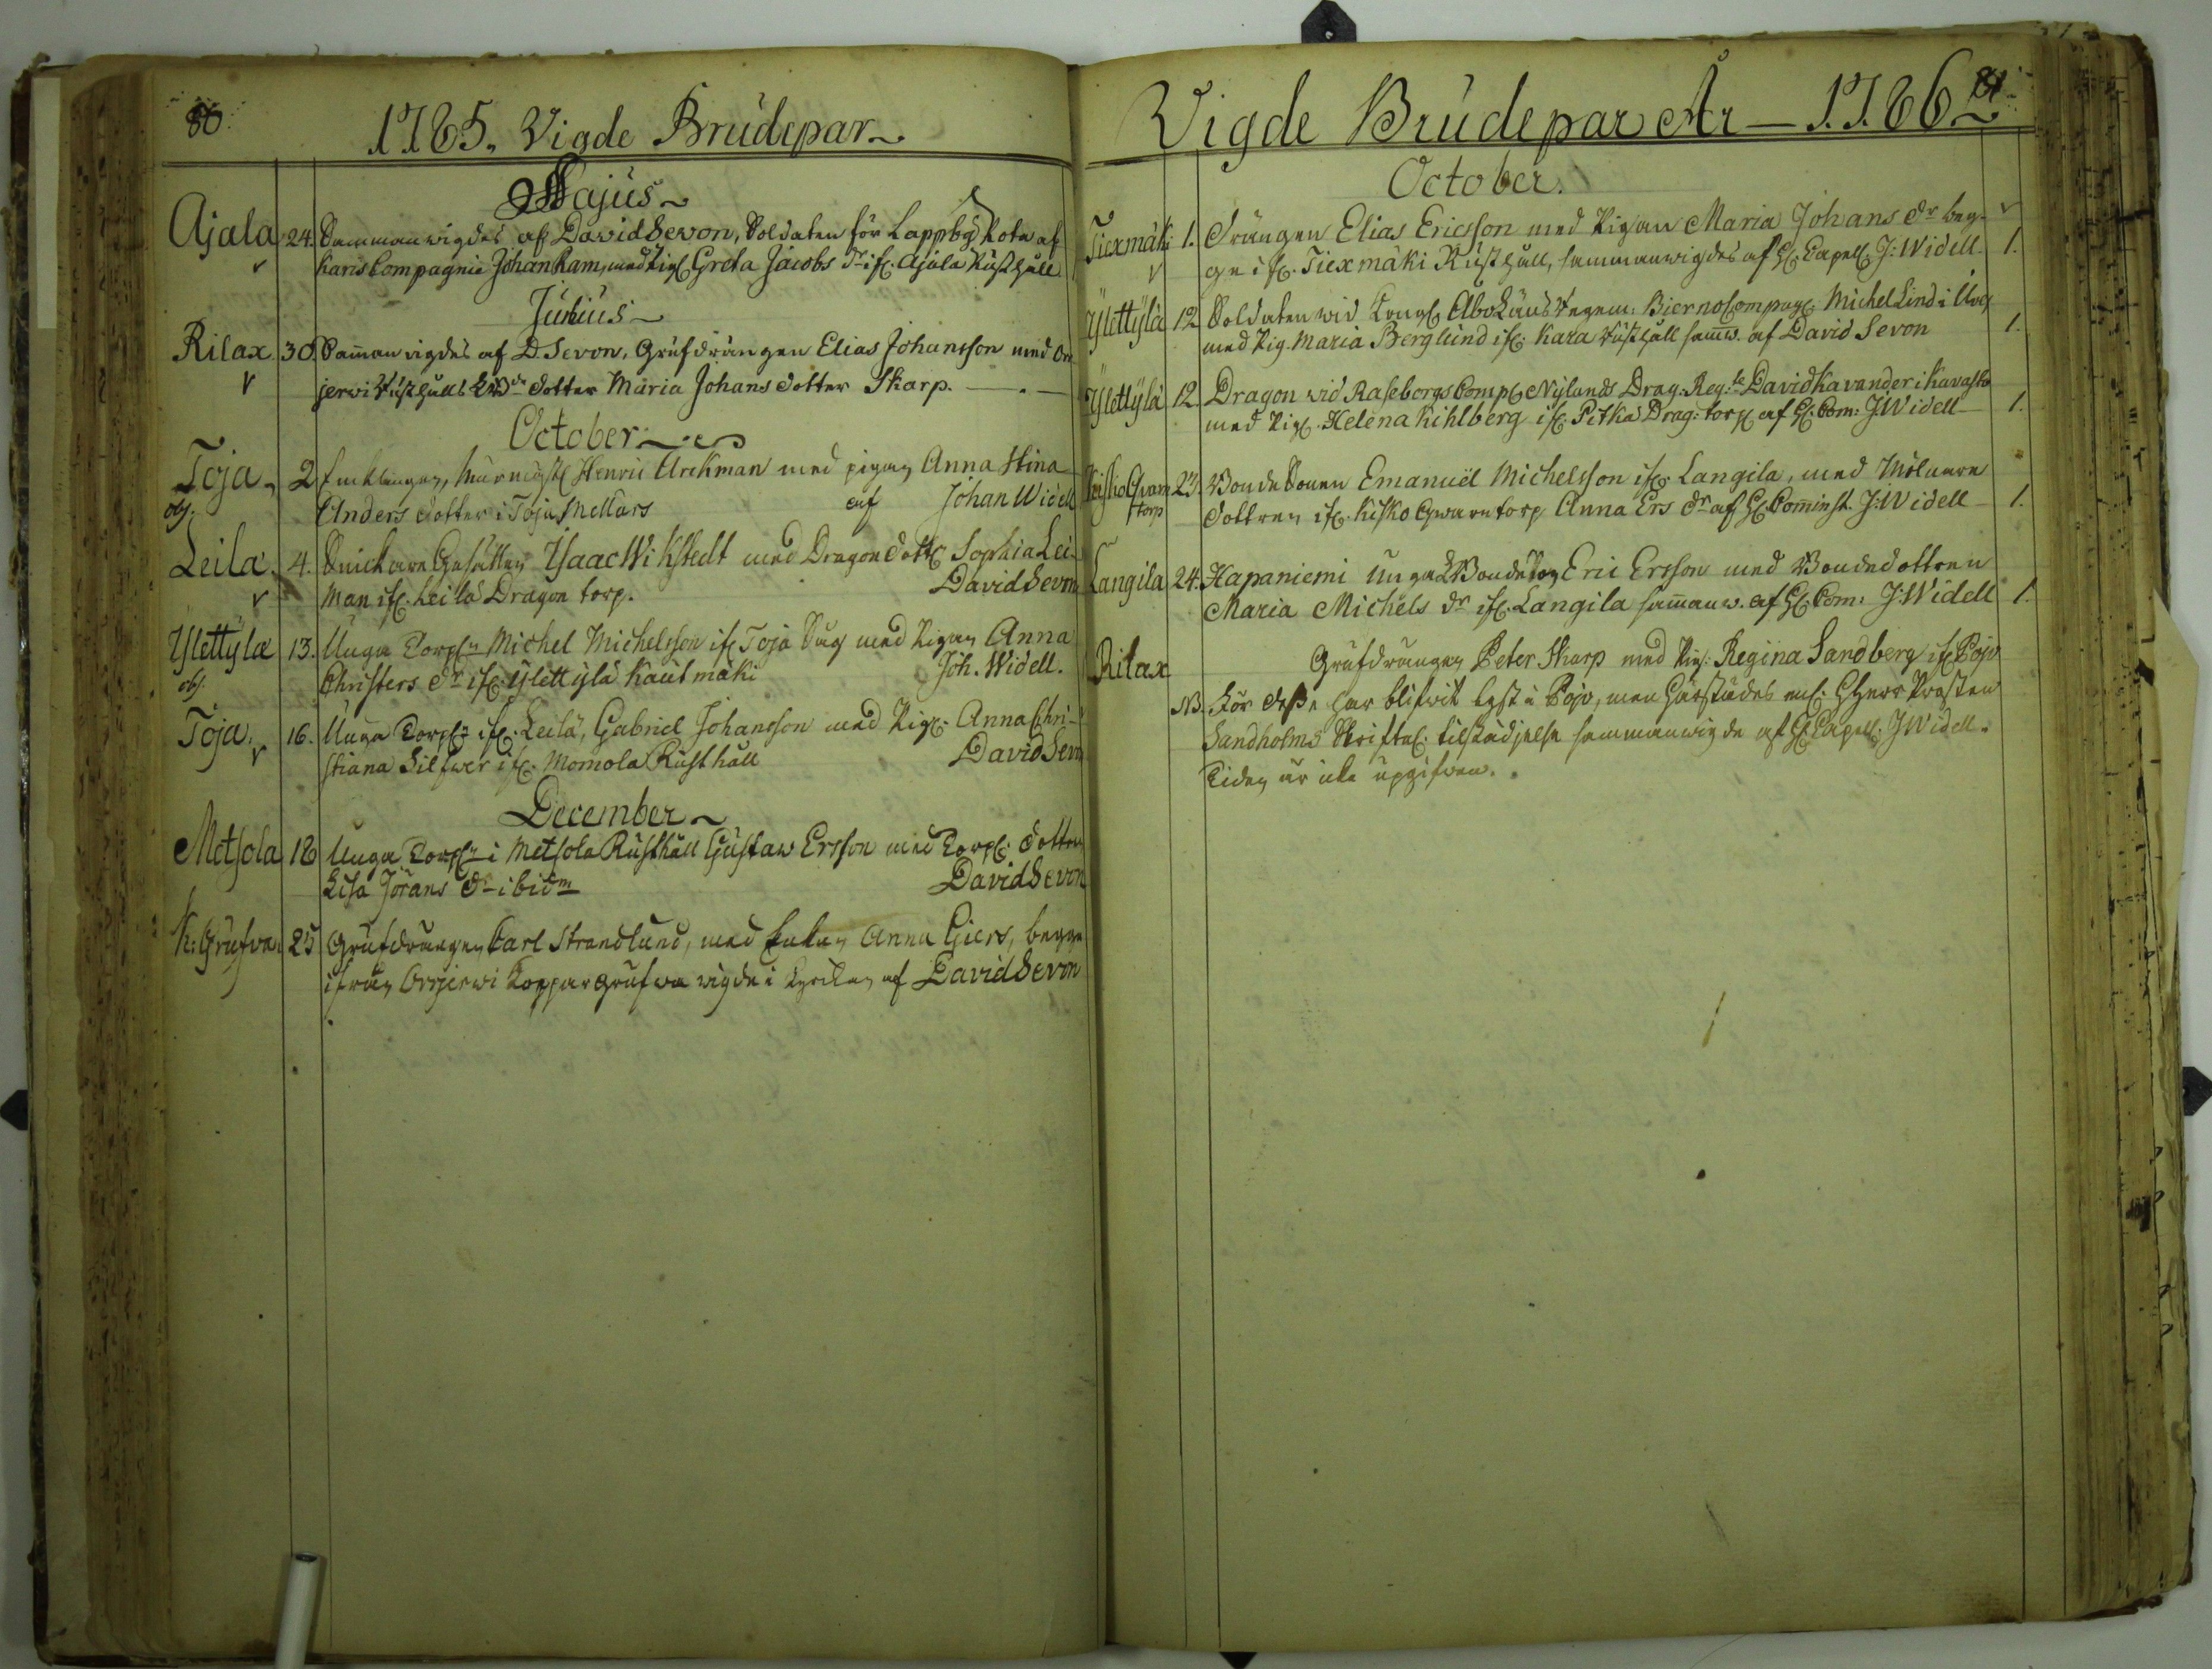 80.
1785. Vigde Brudepar
Majus
Ajala 24. Sammanwigdes af David Sevon, Soldaten för Lappby Rota af
Karis Compagnie Johan Ram, med Pig. Greta Jacobs dr. ifr. Ajala Rusthåll
Junius
Rilax 30. Samman vigdes af D. Sevon, Grufdrängen Elias Johansson med Ori
jerwi Rusthålls dotter Maria Johans dotter Skarp.
October
Toja 2 Enklingen, Murmäst. Henric Arckman med pigan Anna Stina
obs. Anders dotter i Toja Mellars af Johan Widell
Leila 4. Snickare Gesällen Isaac Wikstedt med Dragon dott. Sophia Lei
man ifr. Leila Dragon torp. David Sevon
Ylettylä 13. Unga Torp. Michel Michelsson ifr. Toja med Pigan Anna
obs. Christers dr. ifr. Ylettylä Kautmäki Joh. Widell.
Toja 16. Unga Torp. ifr. Leilä, Gabriel Johansson med Pig. Anna Chri-
stiana Silfwer ifr. Momola Rusthåll David Sevon
December
Metsola 18 Unga Torp. i Metsola Rusthåll Gustaw Ersson med Torp. dottren
Lisa Jörans dr. ibidm David Sevon
K: Grufvan 25 Grufdrängen Carl Strandlund, med Enkan Anna Giers, begge
ifrån Orijerwi Koppargrufwa wigde i Kyrckan af David Sevon
Vigde Brudepar År 1786 81.
October.
Tiexmäki 1. Drängen Elias Ericsson med Pigan Maria Johans dr. beg-
ge ifr. Tiexmäki Rusthåll, sammanwigdes af H. Capell. J: Widell 1.
Ylettylä 12 Soldaten wid Kongl. Åbo Läns Regem: Bierno Compag. Michel Lind i
med Pig. Maria Berglund ifr. Kara Rusthåll samw. af David Sevon 1.
Ylettylä 12. Dragon wid Raseborgs Comp. Nylands Drag. Reg:te David Kavander i Kavasto
med Pig. Helena Kihlberg ifr. Pitka Drag: torp af H. Com: J Widell 1.
Kisko Qvarn torp 23. Bonde Sonen Emanuel Michelsson ifr. Langila, med Mölnare
dottren ifr. Kisko Qwarntorp Anna Ers dr. af H. Cominist. J: Widell 1.
Langila 24. Hapaniemi unga Bonde Eric Ersson med Bondedottren
Maria Michels dr. ifr. Langila samanw. af H. Com: J: Widell 1.
Rilax Grufdrängen Peter Skarp med Pig. Regina Sandberg ifr. Pojo
NB. För dessa har blifwit lyst i Pojo, men härstädes enl. HHerr Prosten
Sandholms Skriftel. tilstädjelse sammanwigde af H. Capell. J Widell.
Tiden är icke upgifven.